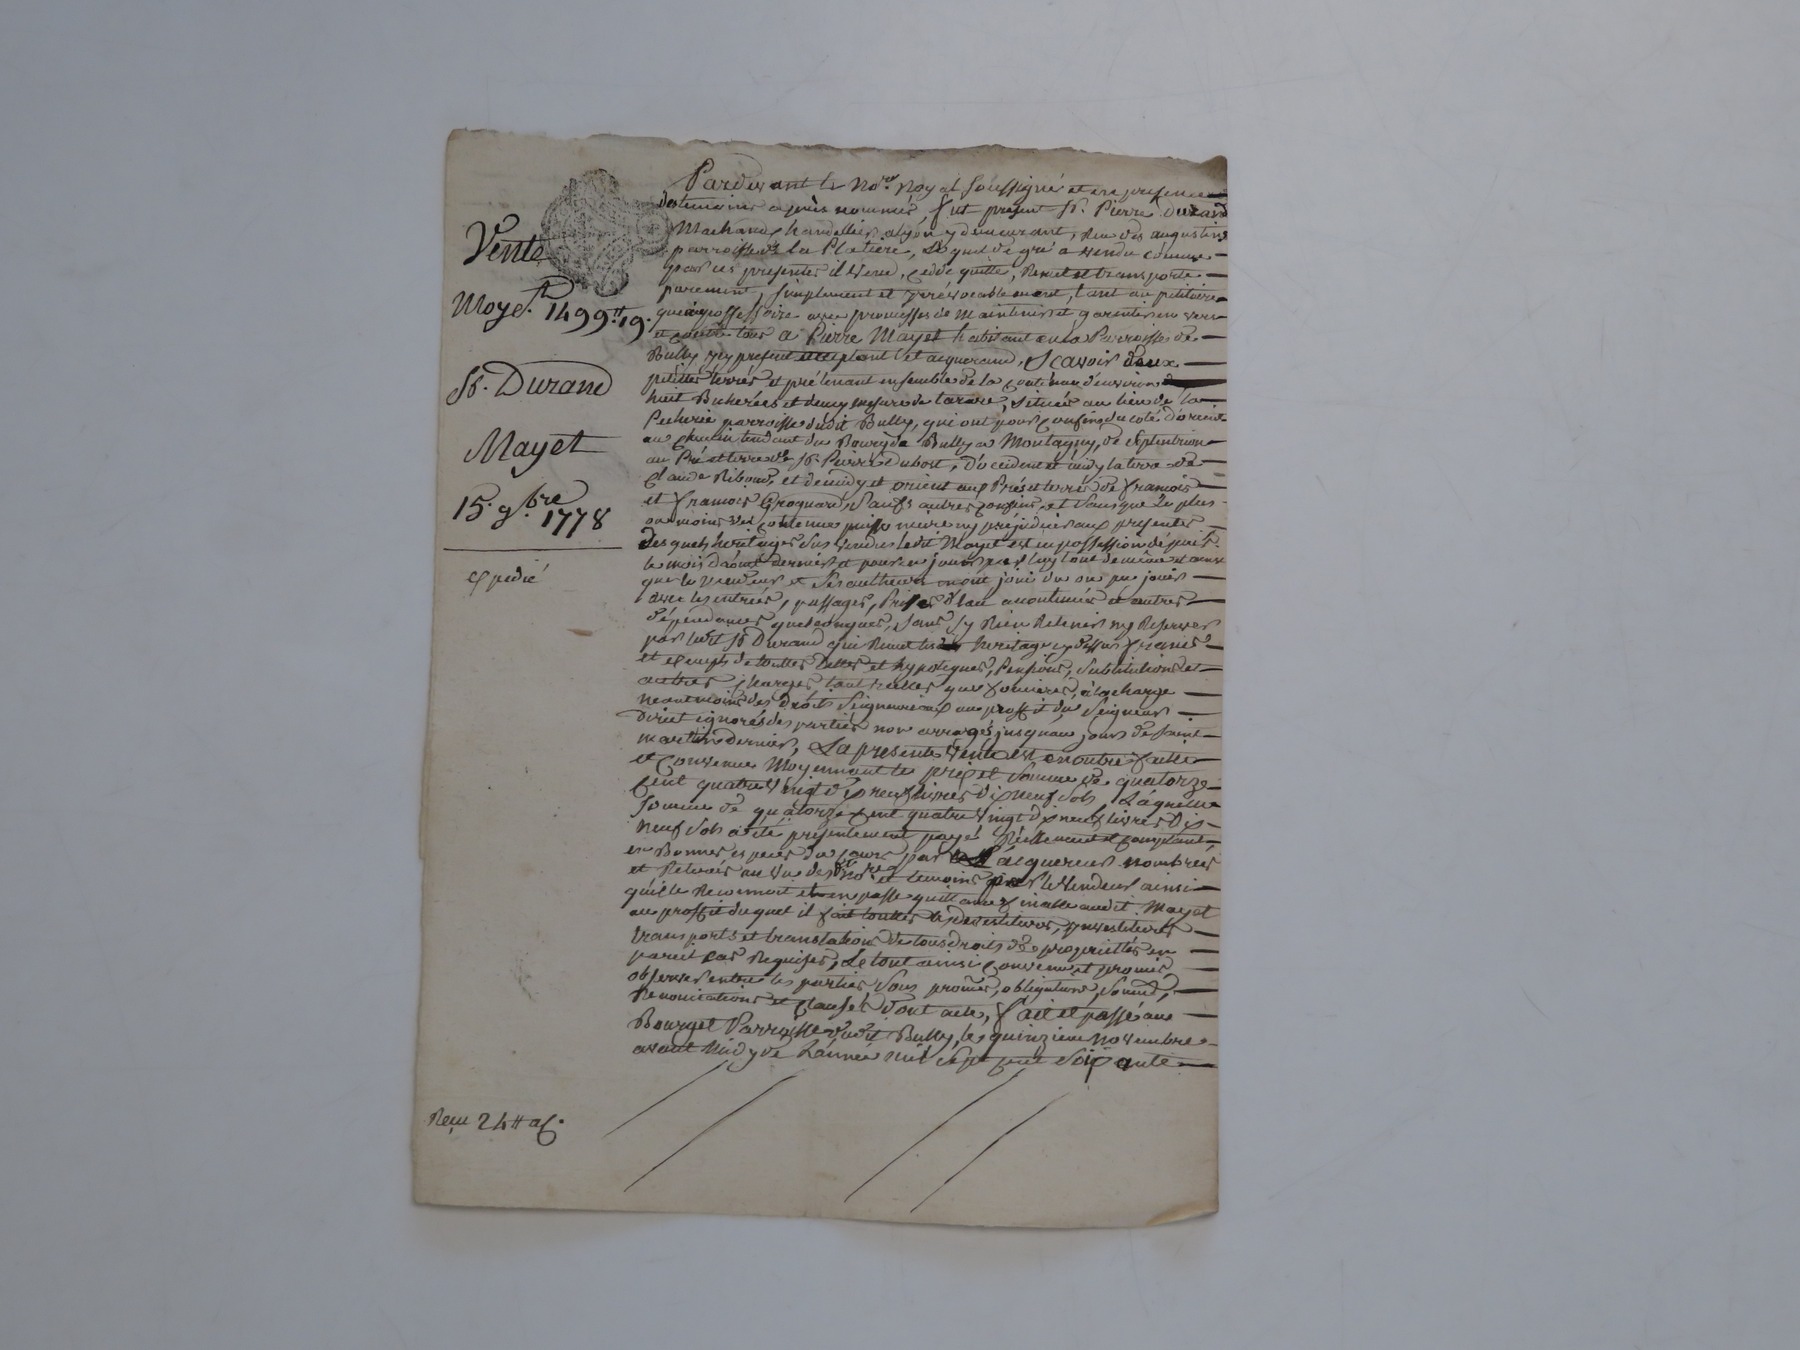 Vente
Moyt. 1499tt 19s.
Sr. Durand
Mayet
15. 9bre
1778
Expedié
Pardevant le Nore. Royal Soussigné et en presence
des temoins après nommés, fut present Sr. Pierre Durand
Marchand Chandellier a Lyon y demeurant, Rue des augustins
parroisse de la Platiere, Lequel de gré a vendu comme
par ces presentes il vend, cede quitte, Remet et transporte
purement, simplement et irrévocablement, tant au petitoire
qu'au possessoire avec promesses de Maintenir et garentir envers
et contre tous a Pierre Mayet habitant en la Parroisse de
Bully icy present acceptant et acquerand, Scavoir deux
petittes terres et pré tenant ensemble de la contenue d'environ
huit Bicherées et demy mesure de tarare, Situés au lieu de la
Pecherie parroisse dudit Bully, qui ont pour confins du coté d'orient
un chemin tendant du Bourg de Bully a Montagny, de Septentrion
au Pré et terre de Sr. Pierre Dubost, d'occident et midy la terre de
Claude Ribaud, et de midy et orient aux Prés et terres de francois
et francois Groguard, Sauf autres confins, et sans que le plus
ou moins de contenue puisse nuire ny prejudicier aux presentes
Desquels heritages Sus vendus ledit Mayet est en possession depuis
le mois d'aoust dernier et pour en jouir par luy tout de même et ainsi
que le vendeur et Ses autheurs en ont joui du ou pu jouir
avec les entrées, passages, Prises d'Eau accoutumés et autres
dépendances quelconques, Sans y Rien Retenir ny Reserver
par ledit Sr. Durand qui Remet les heritages cy dessus francs
et exempts de touttes dettes et hypoteques, Pensions, Substitutions et
autres charges tant réelles que foncieres, a la charge
neantmoins des Droits Seigneuriaux au proffit du Seigneur
direct ignorés des parties non arragés jusqu'au jour de Saint
martin dernier, La presente Vente est en outre faitte
et convenue Moyennant le prix et Somme de quatorze
cent quatre vingt dix neuf livres dix neuf Sols Laquelle
Somme de quatorze cent quatre vingt dix neuf livres dix
neuf Sols a été presentement payé Réellement et comptant
en Bonnes especes du cours par L'acquereur nombrés
et Retirés au vu des dt. nore. et temoins par le Vendeur ainsi
qu'il le Reconnoit et en passe quittance finalle audit Mayet
au proffit duquel il fait touttes les devestitures, investitures
transports et translations de tous droits de proprietés en
pareil cas Requises, Le tout ainsi convenu et promis
observer entre les parties Sous promes, obligations, Soumd,
Renonciations et clauses dont acte, fait et passé au
Bourg et Parroisse dudit Bully, le quinzieme novembre
avant Midy de L'année mil Sept cent Soixante
Reçu 24tt as.